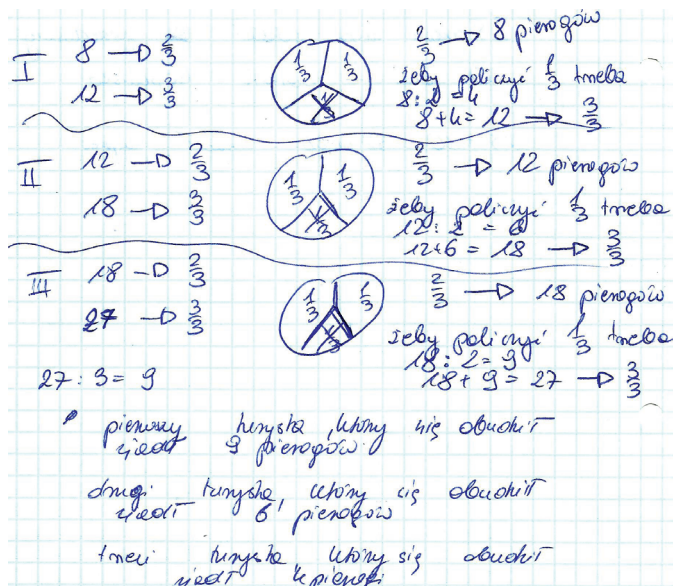 I 8 → 2/3
12 → 3/3
1/3 1/3 1/3
2/3 → 8 pierogów
żeby policzyć 1/3 trzeba
8 : 2 = 4
8 + 4 = 12 → 3/3
II 12 → 2/3
18 → 3/3
1/3 1/3 1/3
2/3 → 12 pierogów
żeby policzyć 1/3 trzeba
12 : 2 = 6
12 + 6 = 18 → 3/3
III 18 → 2/3
27 → 3/3
1/3 1/3 1/3
2/3 → 18 pierogów
żeby policzyć 1/3 trzeba
18 : 2 = 9
18 + 9 = 27 → 3/3
27 : 3 = 9
pierwszy turysta, który się obudził
zjadł 9 pierogów.
drugi turysta, który się obudził
zjadł 6 pierogów
trzeci turysta, który się obudził
zjadł 4 pierogi